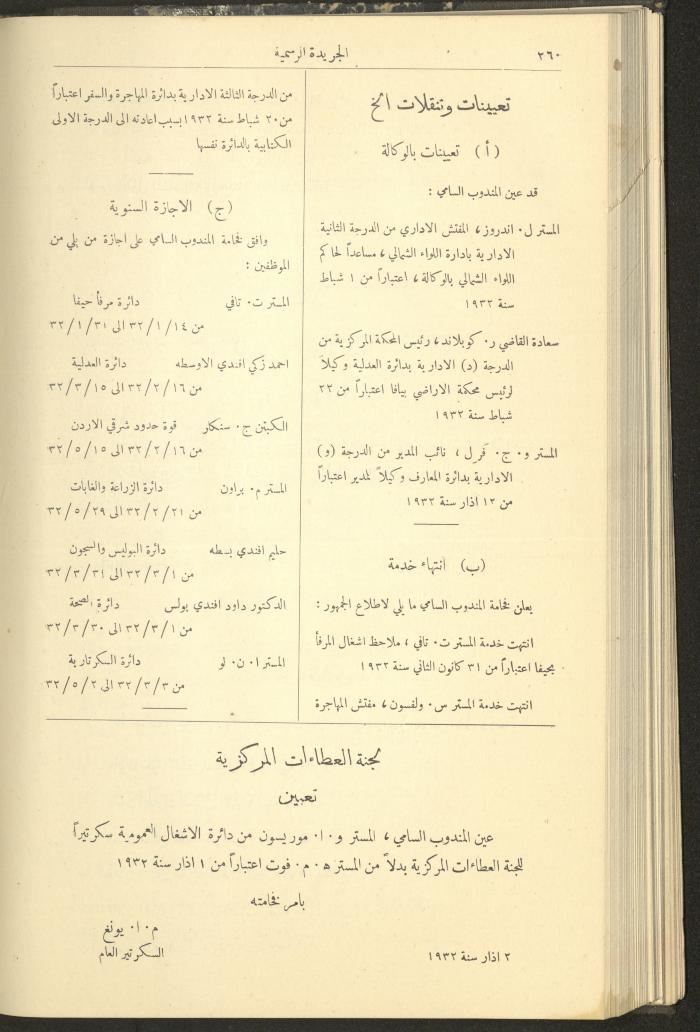 ٢٦٠
الجريدة الرسمية
تعيينات وتنقلات الخ
(أ) تعيينات بالوكالة
قد عين المندوب السامي :
المستر ل٠ اندروز، المفتش الاداري من الدرجة الثانية
الادارية بادارة اللواء الشمالي، مساعداً لحاكم
اللواء الشمالي بالوكالة، اعتباراً من ١ شباط
سنة ١٩٣٢
سعادة القاضي ر٠ كوبلاند، رئيس المحكمة المركزية من
الدرجة (د) الادارية بدائرة العدلية وكيلاً
لرئيس محكمة الاراضي بيافا اعتباراً من ٢٢
شباط سنة ١٩٣٢
المستر و٠ ج٠ فَرل، نائب المدير من الدرجة (و)
الادارية بدائرة المعارف وكيلاً لمدير اعتباراً
من ١٢ اذار سنة ١٩٣٢
(ب) انتهاء خدمة
يعلن فخامة المندوب السامي ما يلي لاطلاع الجمهور :
انتهت خدمة المستر ت٠ تافي، ملاحظ اشغال المرفأ
بحيفا اعتباراً من ٣١ كانون الثاني سنة ١٩٣٢
انتهت خدمة المستر س٠ ولفسون، مفتش المهاجرة
من الدرجة الثالثة الادارية بدائرة المهاجرة والسفر اعتباراً
من ٢٠ شباط سنة ١٩٣٢ بسبب اعادته الى الدرجة الاولى
الكتابية بالدائرة نفسها
(ج) الاجازة السنوية
وافق فخامة المندوب السامي على اجازة من يلي من
الموظفين :
المستر ت٠ تافي دائرة مرفأ حيفا
من ٣٢/١/١٤ الى ٣٢/١/٣١
احمد زكي افندي الاوسطه دائرة العدلية
من ٣٢/٢/١٦ الى ٣٢/٣/١٥
الكبتن ج٠ سنكلر قوة حدود شرقي الاردن
من ٣٢/٢/١٦ الى ٣٢/٥/١٥
المستر م٠ براون دائرة الزراعة والغابات
من ٣٢/٢/٢١ الى ٣٢/٥/٢٩
حليم افندي بسطه دائرة البوليس والسجون
من ٣٢/٣/١ الى ٣٢/٣/٣١
الدكتور داود افندي بولس دائرة الصحة
من ٣٢/٣/١ الى ٣٢/٣/٣٠
المستر ا٠ ن٠ لو دائرة السكرتارية
من ٣٢/٣/٣ الى ٣٢/٥/٢
لجنة العطاءات المركزية
تعيين
عين المندوب السامي، المستر و٠ا٠ موريسون من دائرة الاشغال العمومية سكرتيراً
للجنة العطاءات المركزية بدلاً من المستر ه٠ م٠ فوت اعتباراً من ١ اذار سنة ١٩٣٢
بامر فخامته
م٠ا٠ يونغ
السكرتير العام
٢ اذار سنة ١٩٣٢